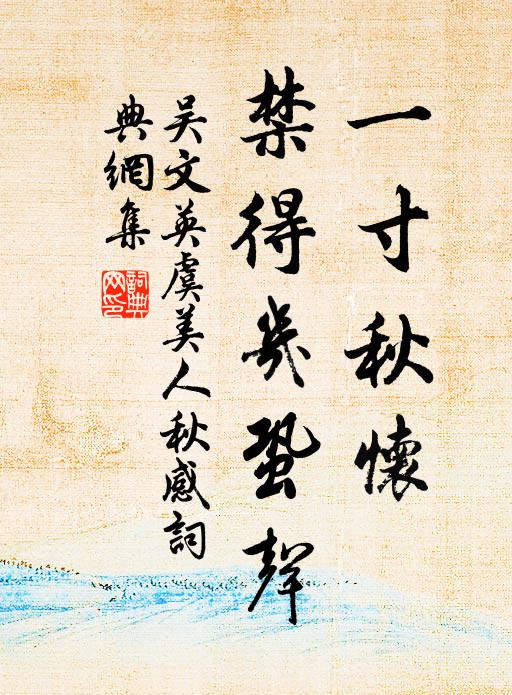 一寸秋懷
禁得幾蛩聲
吴文英虞美人秋感詞
典網集
詞典
网印